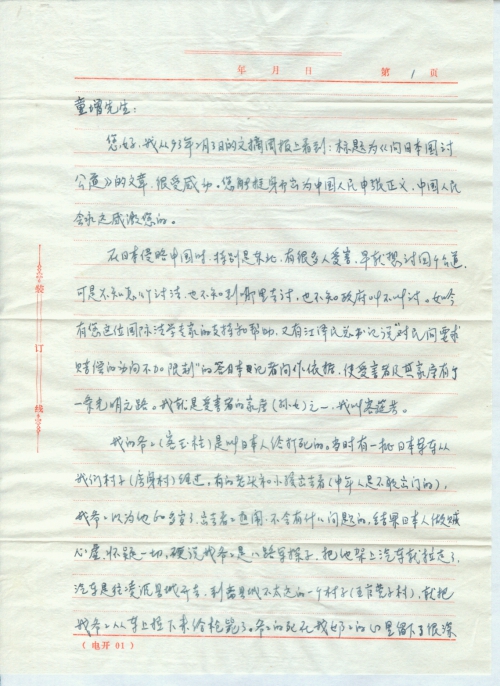 年 月 日 第 1 页
童增先生:
您好,我从93年2月3日的文摘周报上看到:标题为《向日本国讨
公道》的文章,很受感动。您能挺身而出为中国人民申张正义,中国人民
会永远感激您的。
在日本侵略中国时,特别是东北,有很多人受害,早就想讨回个公道,
可是不知怎么个讨法,也不知到哪里去讨,也不知政府叫不叫讨。如今
有您这位国际法学专家的支持和帮助,又有江泽民总书记说"对民间要求
赔偿的动向不加限制"的答日本记者问作依据,使受害者及其家属有了
一条光明之路。我就是受害者的家属(孙女)之一,我叫
我的爷爷是叫日本人给打死的。当时有一批日本军车从
我们村子经过,有的老头和小孩出去看(中年人是不敢出门的),
我爷爷以为他的岁岁了,出去看看热闹,不会有什么问题的,结果日本人做贼
心虚,怀疑一切,硬说我爷爷是八路军探子,把他架上汽车就拉走了,
汽车是往凌源县城开去,到离县城不太远的一个村子,就把
我爷爷从车上推下来给枪毙了。爷爷的死在我奶奶的心里留下了很深
装 订 线
(电开 01)